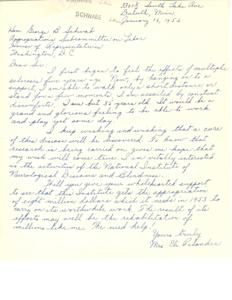 SCHWABE
South Lake Ave
Duluth, Minn
January 16, 1952
Hon. George B. Schwabe
Appropriations Subcommittee on Labor
House of Representatives
Washington, D.C.
Dear Sir:
I first began to feel the effects of multiple
sclerosis four years ago. Now, by hanging on to a
support, I am able to walk only a short distance or
stand for a few moments. I am assailed by constant
discomforts. I am but 36 years old. It would be a
grand and glorious feeling to be able to work
and play yet some day.
I keep wishing and wishing that a cure
of this disease will be discovered. To know that
research is being carried on gives me hope that
my wish will come true. I am vitally interested
in the activities of the National Institute of
Neurological Diseases and Blindness.
Will you give your wholehearted support
to see that this Institute gets the appropriation
of eight million dollars which it needs in 1953 to
carry on its worthwhile work. The result of its
efforts may well be the rehabilitation of
millions like me. We need help!
Yours truly
Mrs. Eli Pelander